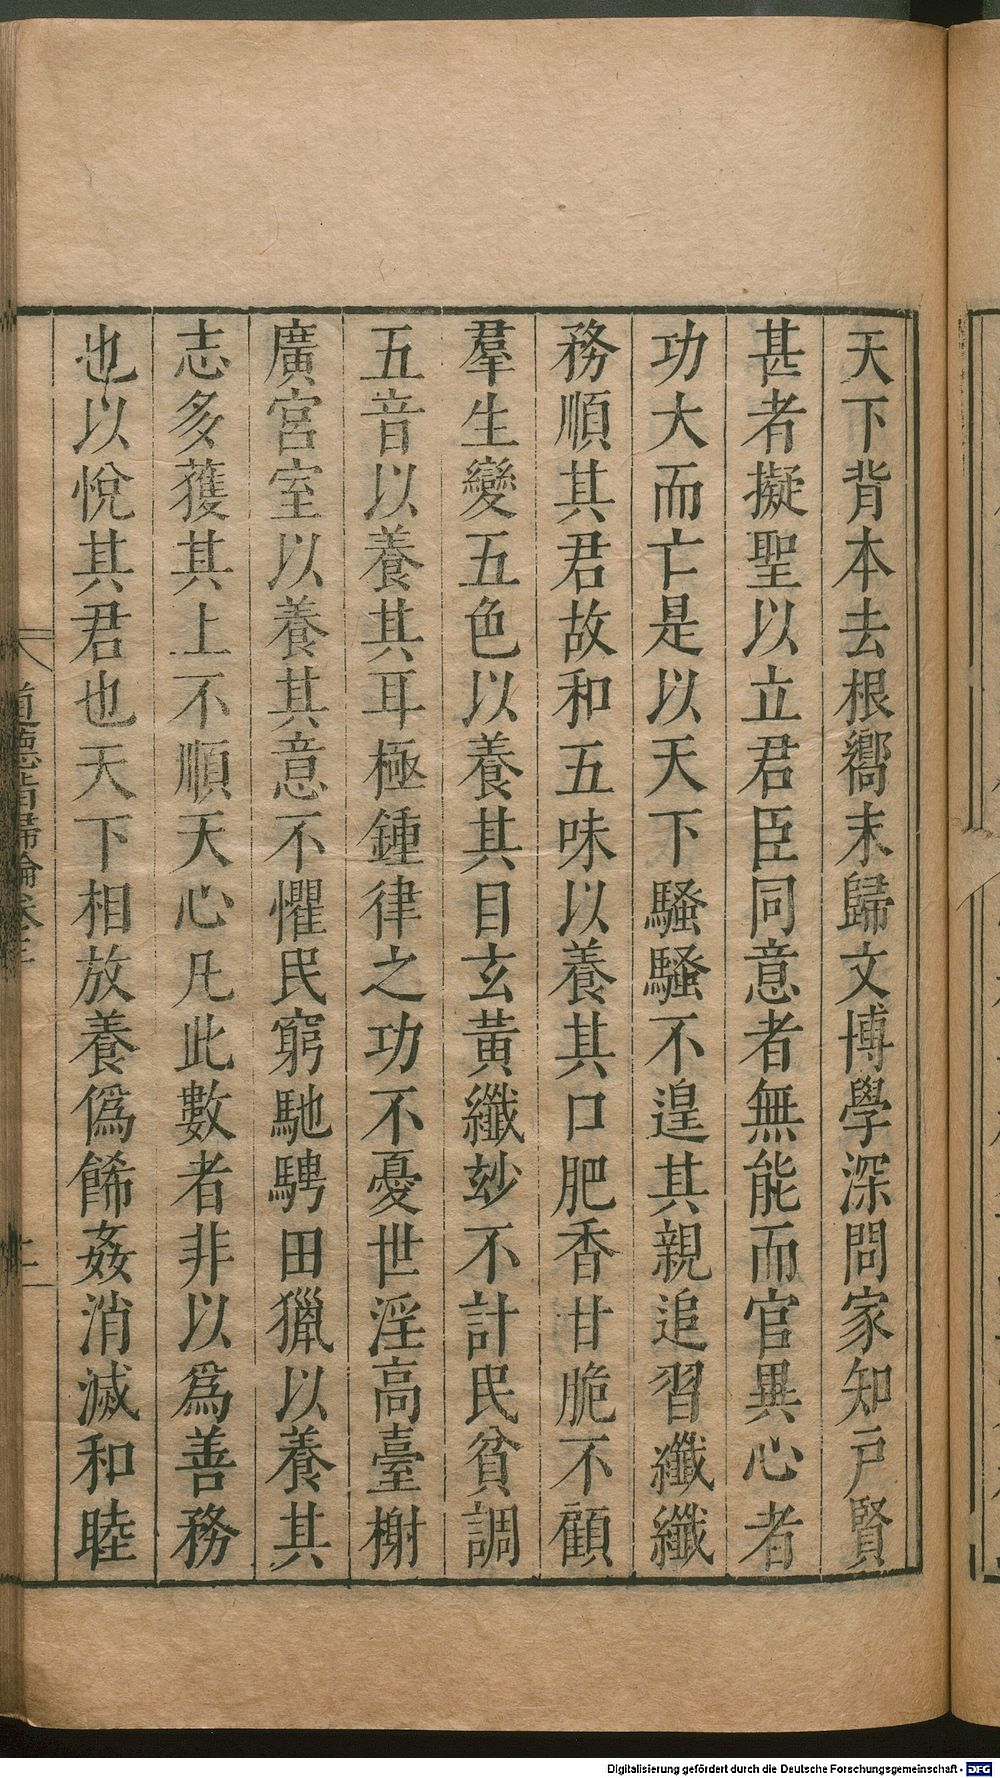 天下背本去根嚮末歸文博學深問家知戶賢
甚者擬聖以立君臣同意者無能而官異心者
功大而亡是以天下騷騷不遑其親追習纖纖
務順其君故和五味以養其口肥香甘脆不顧
羣生變五色以養其目玄黃纖玅不計民貧調
五音以養其耳極鍾律之功不憂世淫高臺榭
廣宮室以養其意不懼民窮馳騁田獵以養其
志多獲其上不順天心凡此數者非以爲善務
也以悅其君也天下相放養僞飾姦消滅和睦
道德指歸論卷三
Digitalisierung gefördert durch die Deutsche Forschungsgemeinschaft - DFG